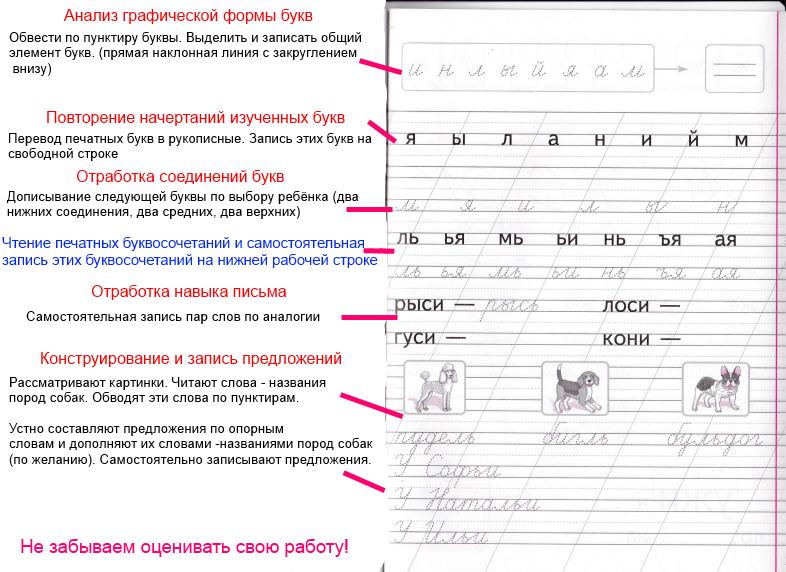 Анализ графической формы букв
Обвести по пунктиру буквы. Выделить и записать общий
элемент букв. (прямая наклонная линия с закруглением
внизу)
и н л ы й я а м
Повторение начертаний изученных букв
Перевод печатных букв в рукописные. Запись этих букв на
свободной строке
я ы л а н и й м
Отработка соединений букв
Дописывание следующей буквы по выбору ребёнка (два
нижних соединения, два средних, два верхних)
м я и л ы н
Чтение печатных буквосочетаний и самостоятельная
запись этих буквосочетаний на нижней рабочей строке
ль ья мь ьи нь ъя ая
ль ья мь ьи нь ъя ая
Отработка навыка письма
Самостоятельная запись пар слов по аналогии
рыси — рысь лоси —
гуси — кони —
Конструирование и запись предложений
Рассматривают картинки. Читают слова - названия
пород собак. Обводят эти слова по пунктирам.
Устно составляют предложения по опорным
словам и дополняют их словами -названиями пород собак
(по желанию). Самостоятельно записывают предложения.
пудель бигль бульдог
У Софьи
У Натальи
У Ильи
Не забываем оценивать свою работу!